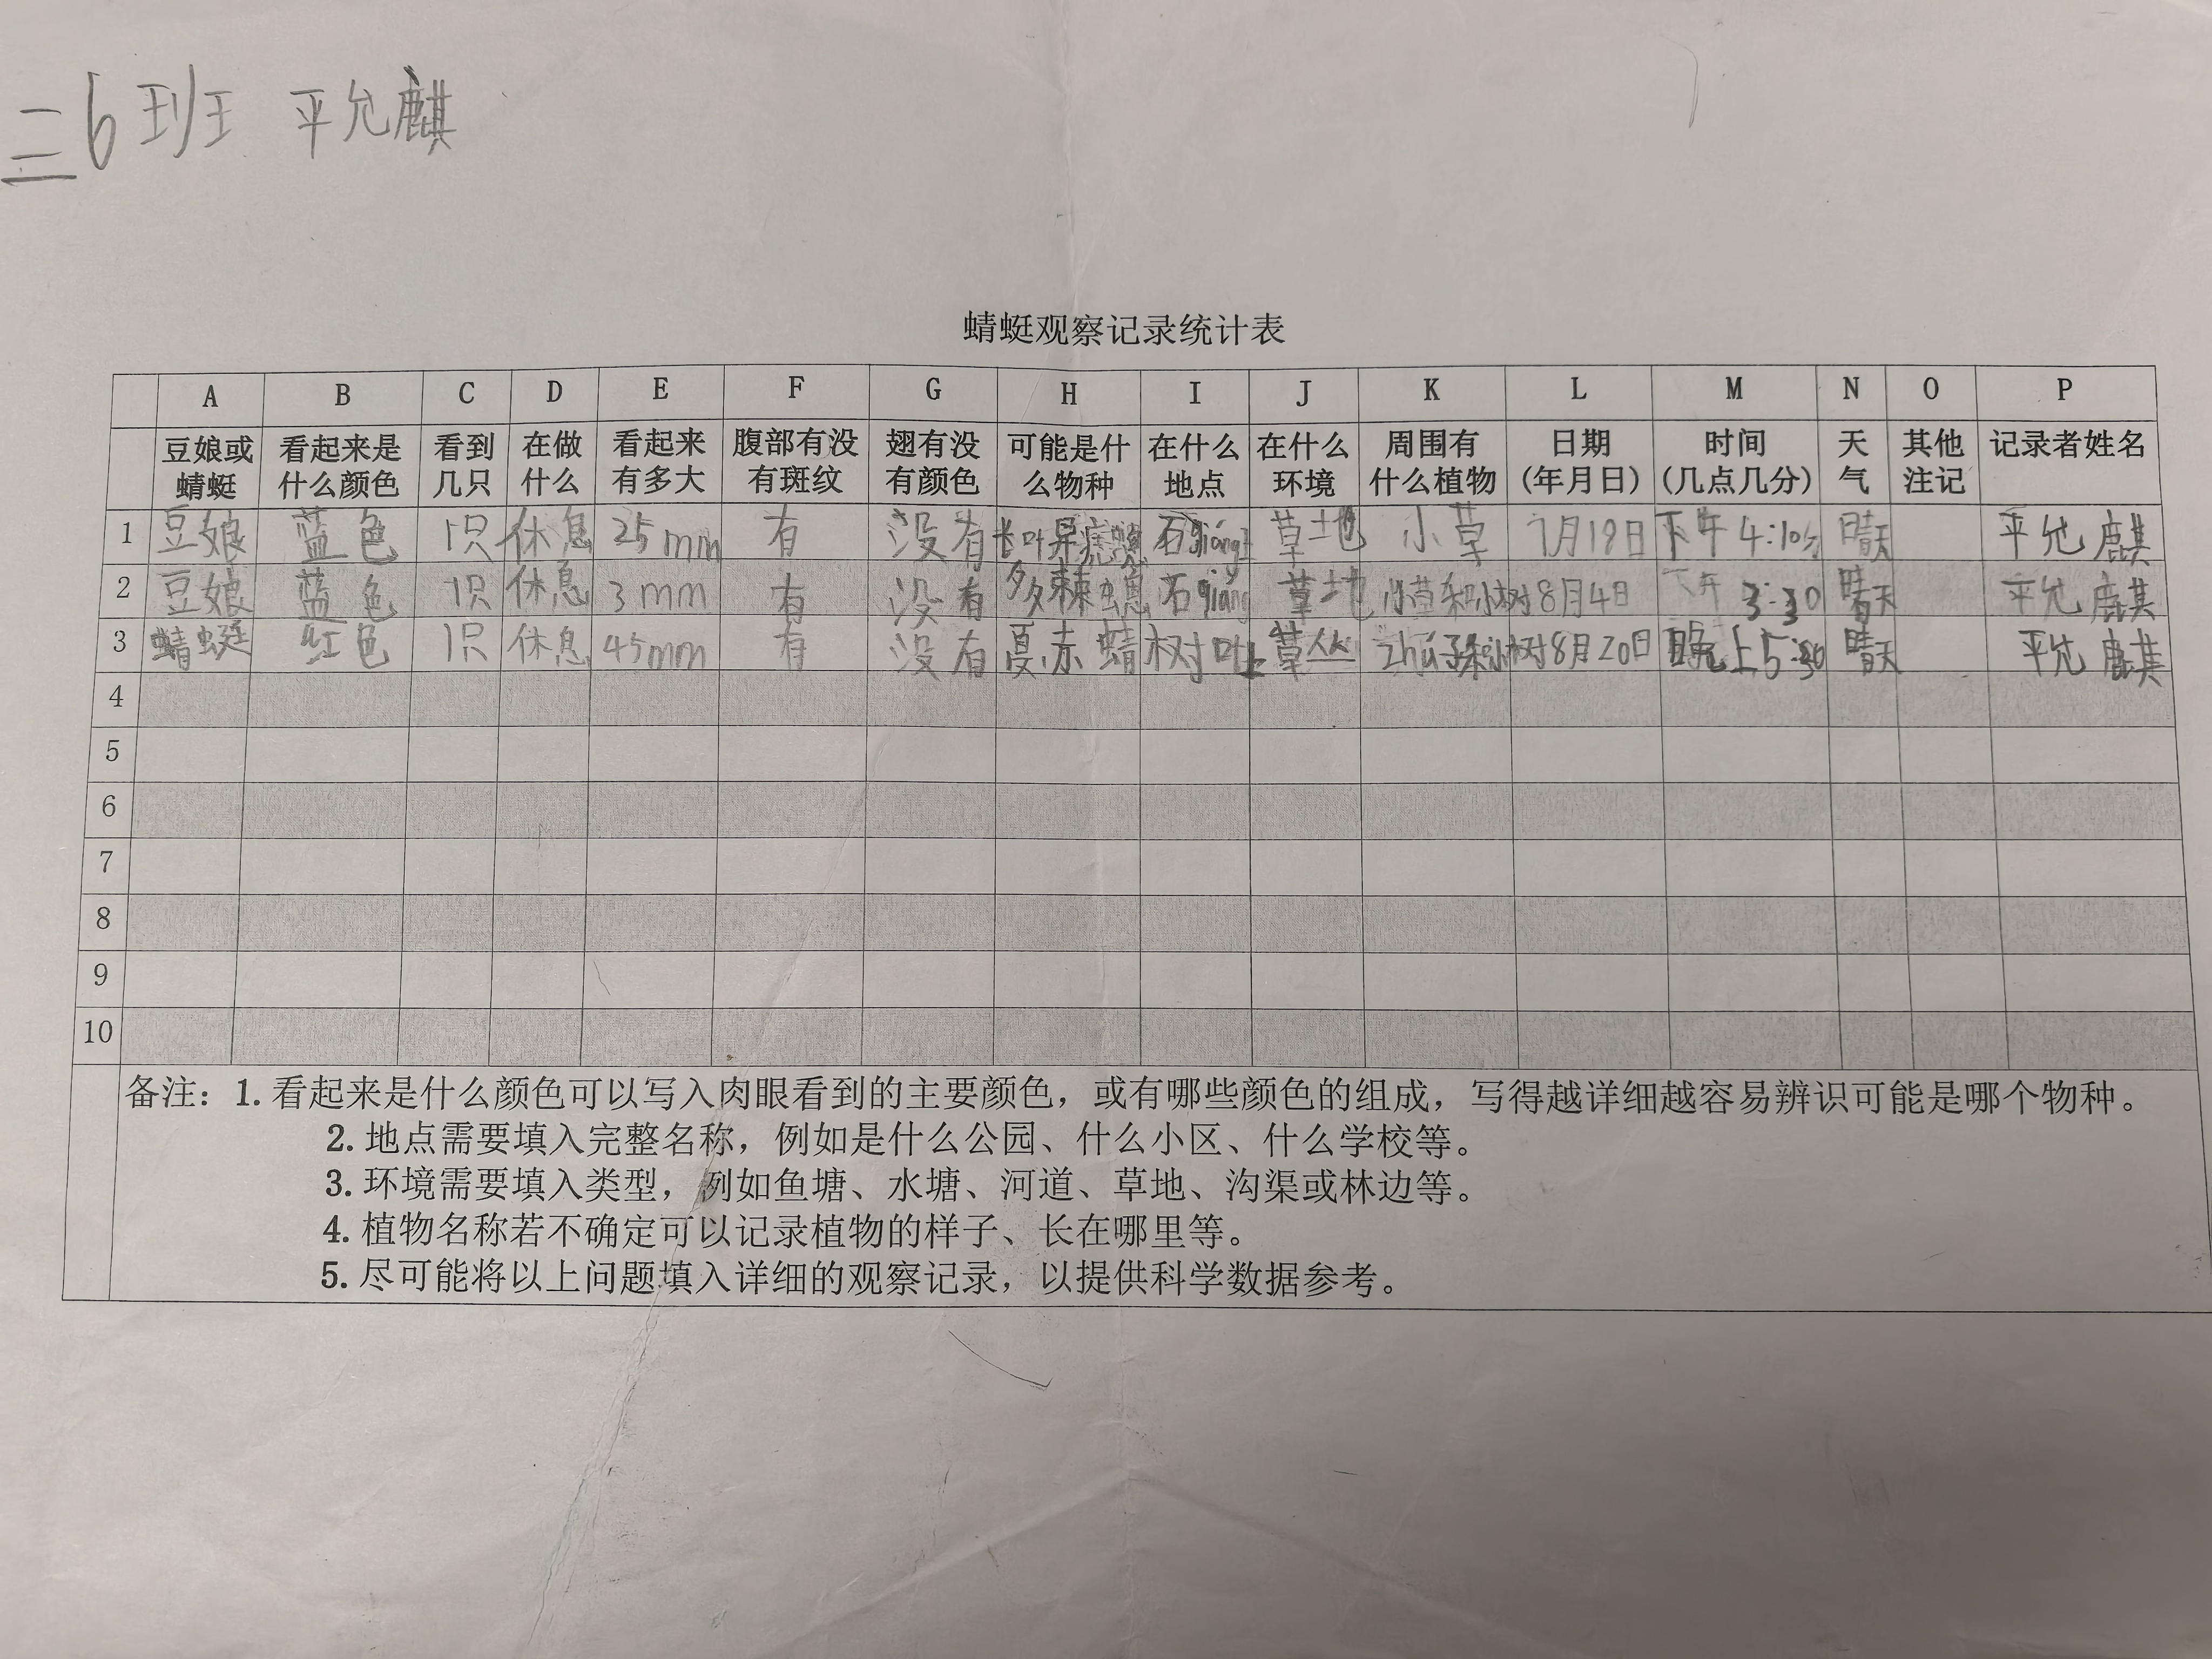 三6班 平允麒
蜻蜓观察记录统计表
A B C D E F G H I J K L M N O P
豆娘或蜻蜓 看起来是什么颜色 看到几只 在做什么 看起来有多大 腹部有没有斑纹 翅有没有颜色 可能是什么物种 在什么地点 在什么环境 周围有什么植物 日期(年月日) 时间(几点几分) 天气 其他注记 记录者姓名
1 豆娘 蓝色 1只 休息 25mm 有 没有 长叶异痣蟌 石qiang上 草地 小草 7月19日 下午4:10分 晴天 平允麒
2 豆娘 蓝色 1只 休息 3mm 有 没有 多棘蟌 石qiang 草地 小草和小树 8月4日 下午3:30 晴天 平允麒
3 蜻蜓 红色 1只 休息 45mm 有 没有 夏赤蜻 树叶上 草丛 zhu子和小树 8月20日 晚上5:30 晴天 平允麒
4
5
6
7
8
9
10
备注：1. 看起来是什么颜色可以写入肉眼看到的主要颜色，或有哪些颜色的组成，写得越详细越容易辨识可能是哪个物种。
2. 地点需要填入完整名称，例如是什么公园、什么小区、什么学校等。
3. 环境需要填入类型，例如鱼塘、水塘、河道、草地、沟渠或林边等。
4. 植物名称若不确定可以记录植物的样子、长在哪里等。
5. 尽可能将以上问题填入详细的观察记录，以提供科学数据参考。